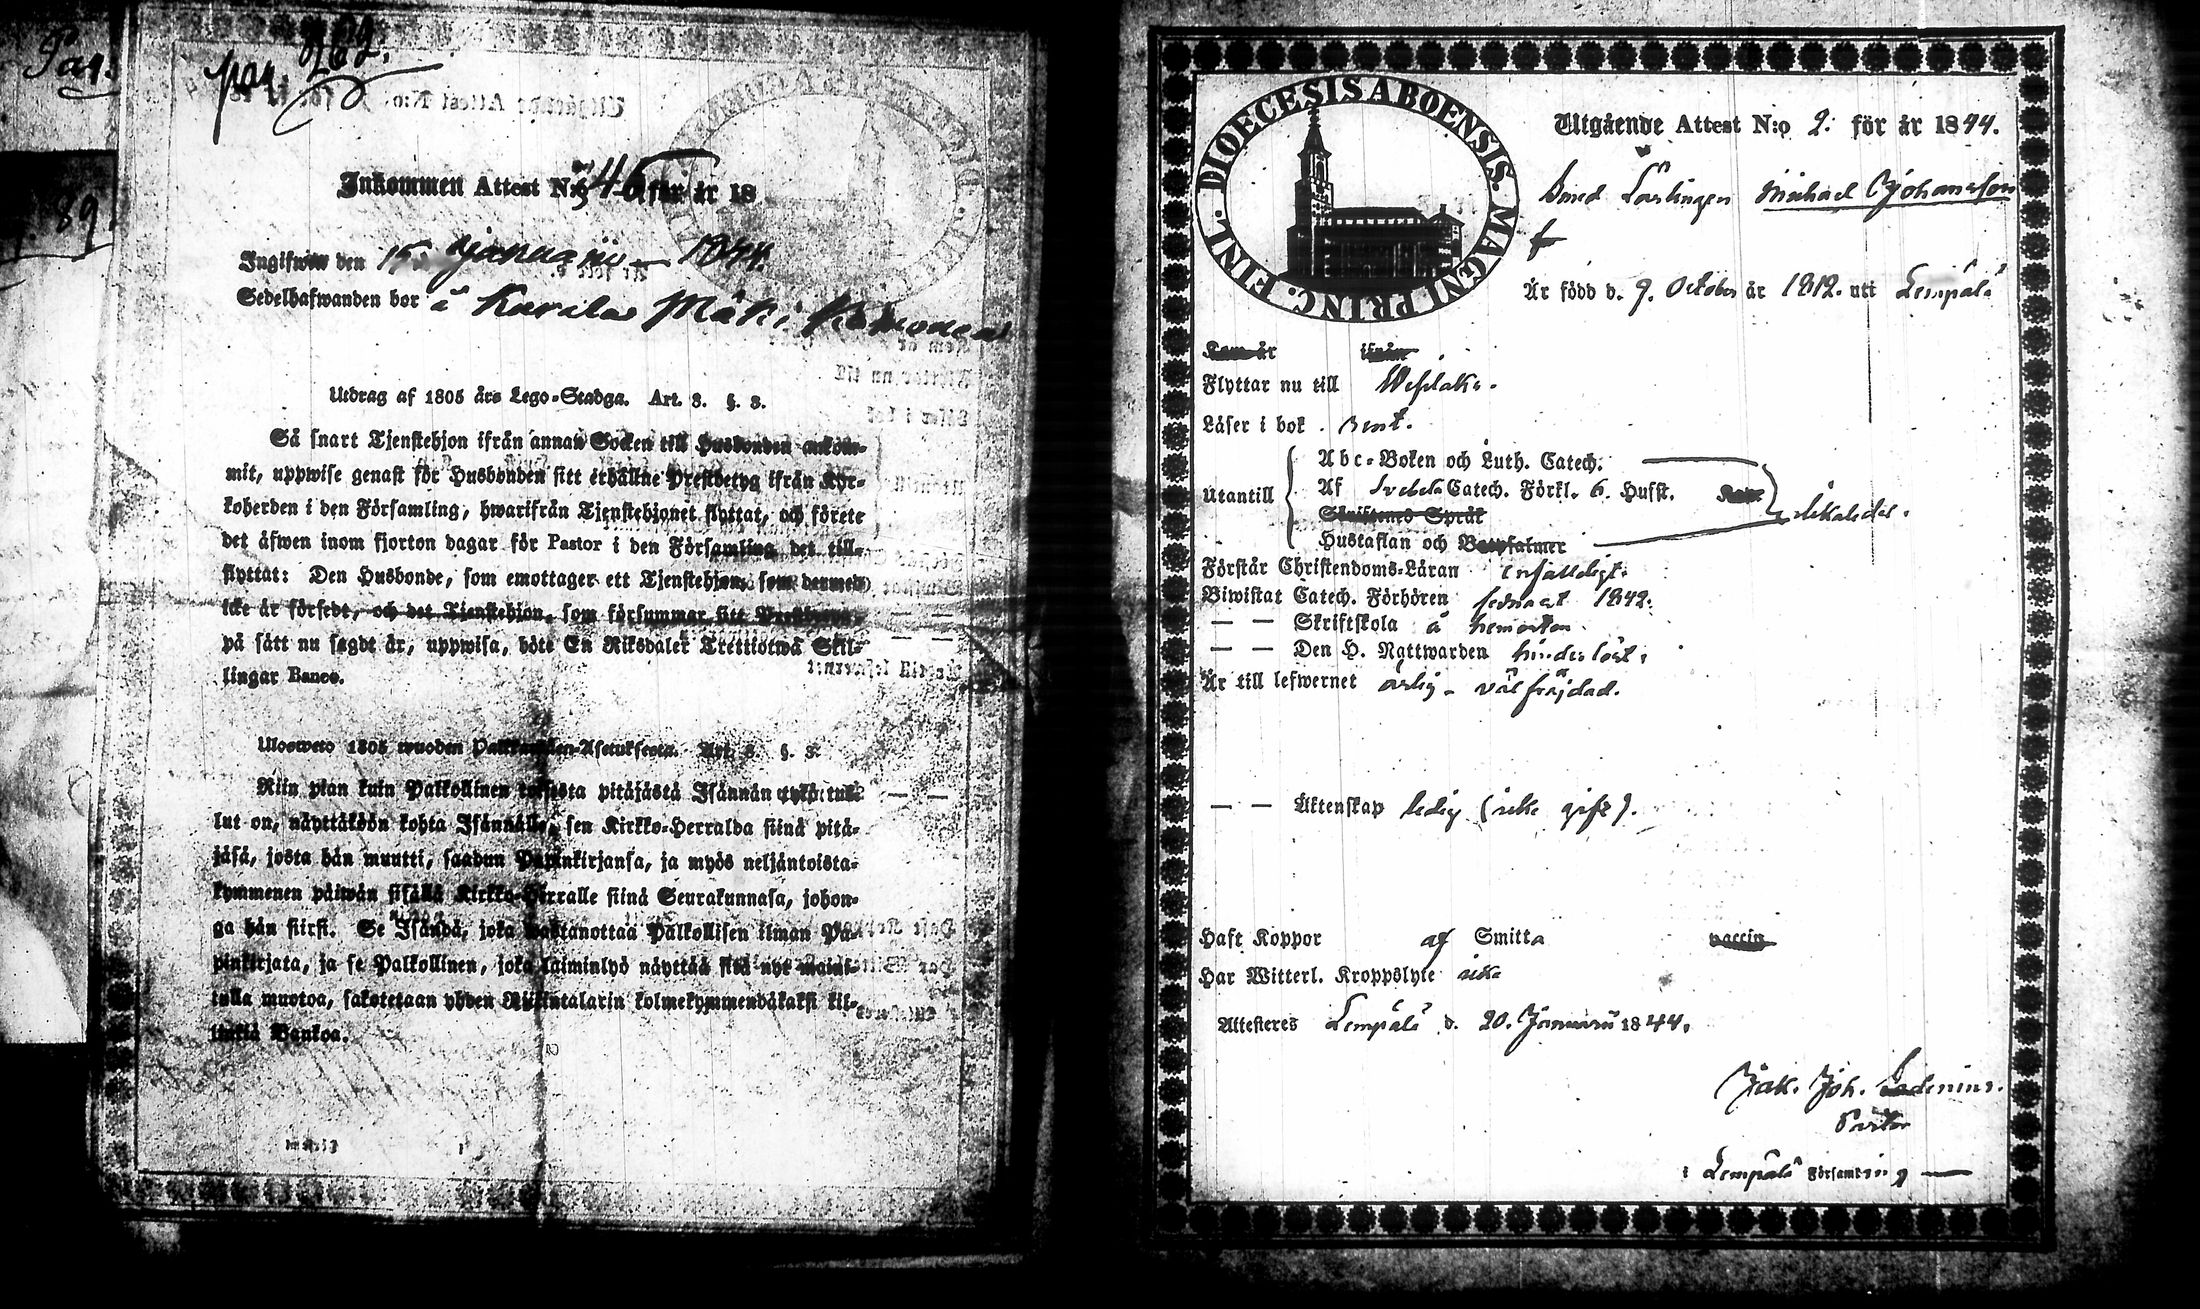 Pag.
89.
pag. 262.
Inkommen Attest N:o 345 för år 18
Ingifwen den 15 Januarii 1844.
Sedelhafwanden bor å Kurala Mäki
Utdrag af 1805 års Lego-Stadga. Art. 3. §. 3.
Så snart Tjenstehjon ifrån annan Socken till Husbonden ankom-
mit, uppwise genast för Husbonden sitt erhållne Prestbetyg ifrån Kyr-
koherden i den Församling, hwarifrån Tjenstehjonet flyttat, och förete
det äfwen inom fjorton dagar för Pastor i den Församling det till-
flyttat: Den Husbonde, som emottager ett Tjenstehjon, som dermed
icke är försedt, och det Tjenstehjon, som försummar sitt Prestbetyg,
på sätt nu sagdt är, uppwisa, böte En Riksdaler Trettiotwå Skil-
lingar Banco.
Ulosweto 1805 wuoden Palkkawäen-Asetuksesta. Art. 3. §. 3.
Niin pian kuin Palkollinen toisesta pitäjästä Isännän tykö tul-
lut on, näyttäköön kohta Isännälle, sen Kirkko-Herralda siinä pitä-
jäsä, josta hän muutti, saadun Papinkirjansa, ja myös neljäntoista-
kymmenen päiwän sisällä Kirkko-Herralle siinä Seurakunnasa, johon-
ga hän siirsi. Se Isändä, joka wastanottaa Palkollisen ilman Pa-
pinkirjata, ja se Palkollinen, joka laiminlyö näyttää sitä nyt maini-
tulla muotoa, sakotetaan yhden Riikintalarin kolmekymmendäkaksi kil-
linkiä Bankoa.
DIOECESIS ABOENSIS. MAGNI PRINC. FINL.
Utgående Attest N:o 2. för år 1844.
Smed Lärlingen Michael Johansson
Är född d. 9. October år 1812. uti Lempälä
Kom är ifrån
Flyttar nu till Wesilaks.
Läser i bok. rent.
Abc-Boken och Luth. Catech.
Utantill Af Svebelii Catech. Förkl. 6. Hufst. Kan
Skriftenes Språk
Hustaflan och Botpsalmer
Förstår Christendoms-Läran enfaldigt.
Biwistat Catech. Förhören sednast 1842.
— — Skriftskola å hemorten
— — Den H. Nattwarden hinderlöst.
Är till lefwernet ärlig - väl fräjdad.
— — Äktenskap ledig (icke gift).
Haft Koppor af Smitta vaccin
Har Witterl. Kroppslyte icke
Attesteres Lempälä d. 20. Januarii 1844.
Jak. Joh.
Pastor
i Lempälä Församling —